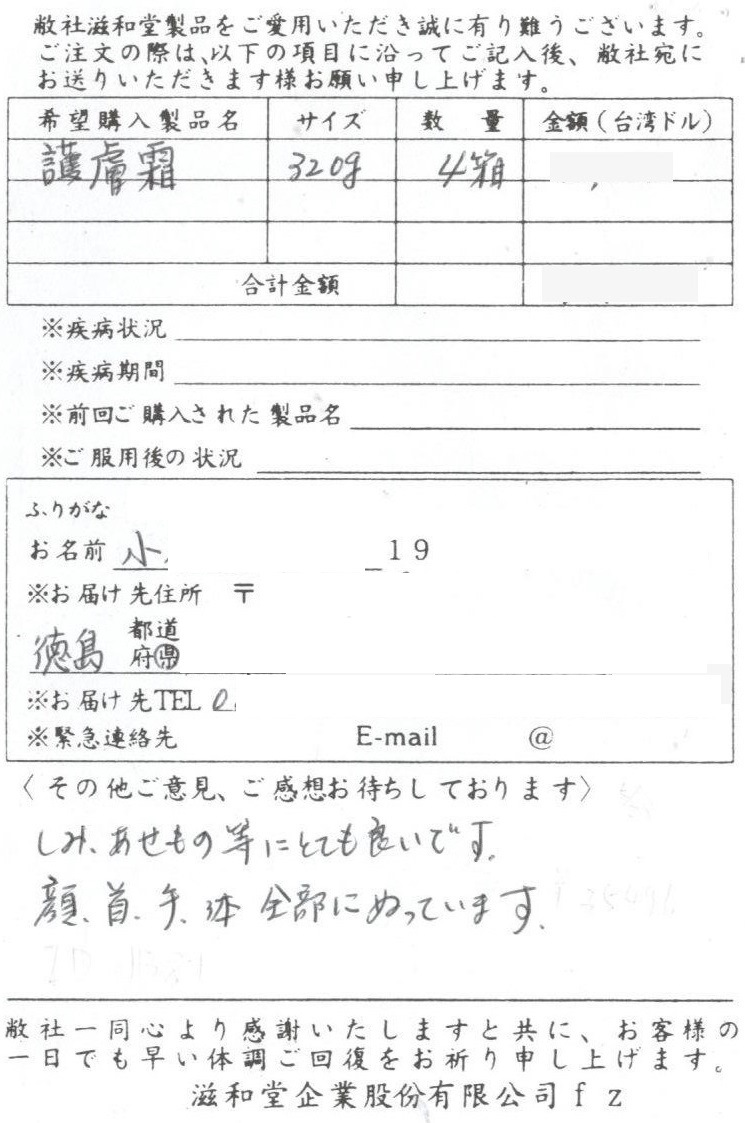 敝社滋和堂製品をご愛用いただき誠に有り難うございます。
ご注文の際は、以下の項目に沿ってご記入後、敝社宛に
お送りいただきます様お願い申し上げます。
希望購入製品名 サイズ 数 量 金額(台湾ドル)
護膚霜 320g 4箱
合計金額
※疾病状況
※疾病期間
※前回ご購入された製品名
※ご服用後の状況
ふりがな
お名前 小 19
※お届け先住所 〒
徳島 都道府県
※お届け先TEL 0
※緊急連絡先 E-mail @
〈その他ご意見、ご感想お待ちしております〉
しみ、あせもの等にとても良いです。
顔、首、手、体 全部にぬっています。
敝社一同心より感謝いたしますと共に、お客様の
一日でも早い体調ご回復をお祈り申し上げます。
滋和堂企業股份有限公司fz